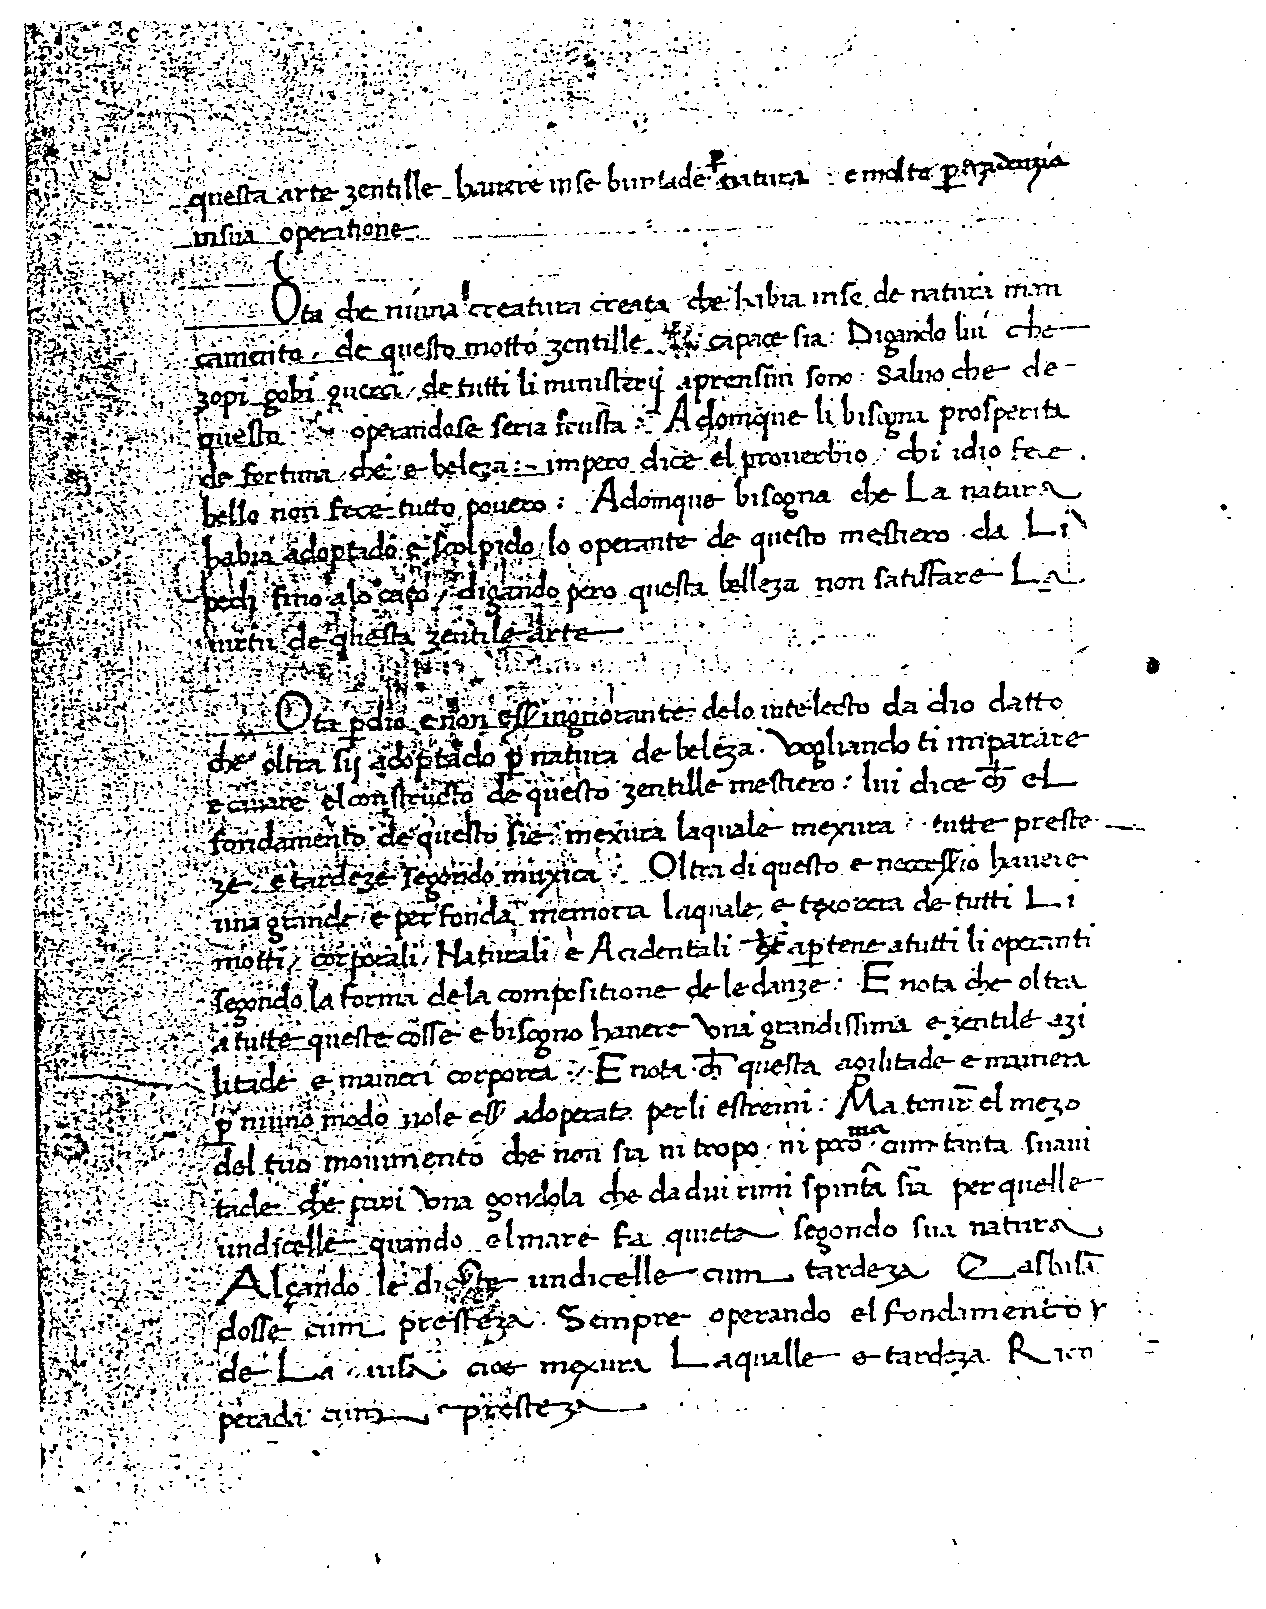 questa arte zentille havere in se buntade p natura : e molta
in sua operatione
Ota che niuna creatura creata che habia in se de natura man
camento de questo motto zentille capace sia : Digando lui che
zopi gobi guerci de tutti li ministerij aprensuri sono : Salvo che de
questo operandose seria frusta : Adomque li bisogna prosperita
de fortuna che e beleza : impero dice el proverbio chi idio fece
bello non fece tutto povero : Adomque bisogna che La natura
habia adoptado e scolpido lo operante de questo mestiero da Li
pedi fino a lo capo / digando pero questa belleza non satisffare La
virtu de questa zentile arte
Ota p dio e non essere ingnorante delo intelecto da dio datto
che oltra sij adoptado p natura de beleza . Vogliando ti imparare
e cavare el constructo de questo zentille mestiero : lui dice ch el
fondamento de questo sie mexura laquale mexura tutte preste
ze e tardeze segondo muxica : Oltra di questo e necessio havere
una grande e perfonda memoria laquale e texorera de tutti Li
motti corporali / Naturali e Acidentali che aptene a tutti li operanti
segondo la forma de la compositione de le danze : E nota che oltra
a tutte queste cosse e bisogno havere Una grandissima e zentile agi
litade e mainera corporea : E nota ch questa agilitade e mainera
p niuno modo vole ess adoperata per li estremi : Ma tenir el mezo
del tuo movimento che non sia ni tropo ni poco ma cum tanta suavi
tade che pari Una gondola che da dui rimi spinta sia per quelle
undicelle quando el mare fa quieta segondo sua natura
Alçando le dicte undicelle cum tardeza E asbasan
dosse cum presteza . Sempre operando el fondamento
de La causa cioe mexura Laqualle e tardeza Ricu
perada cum presteza